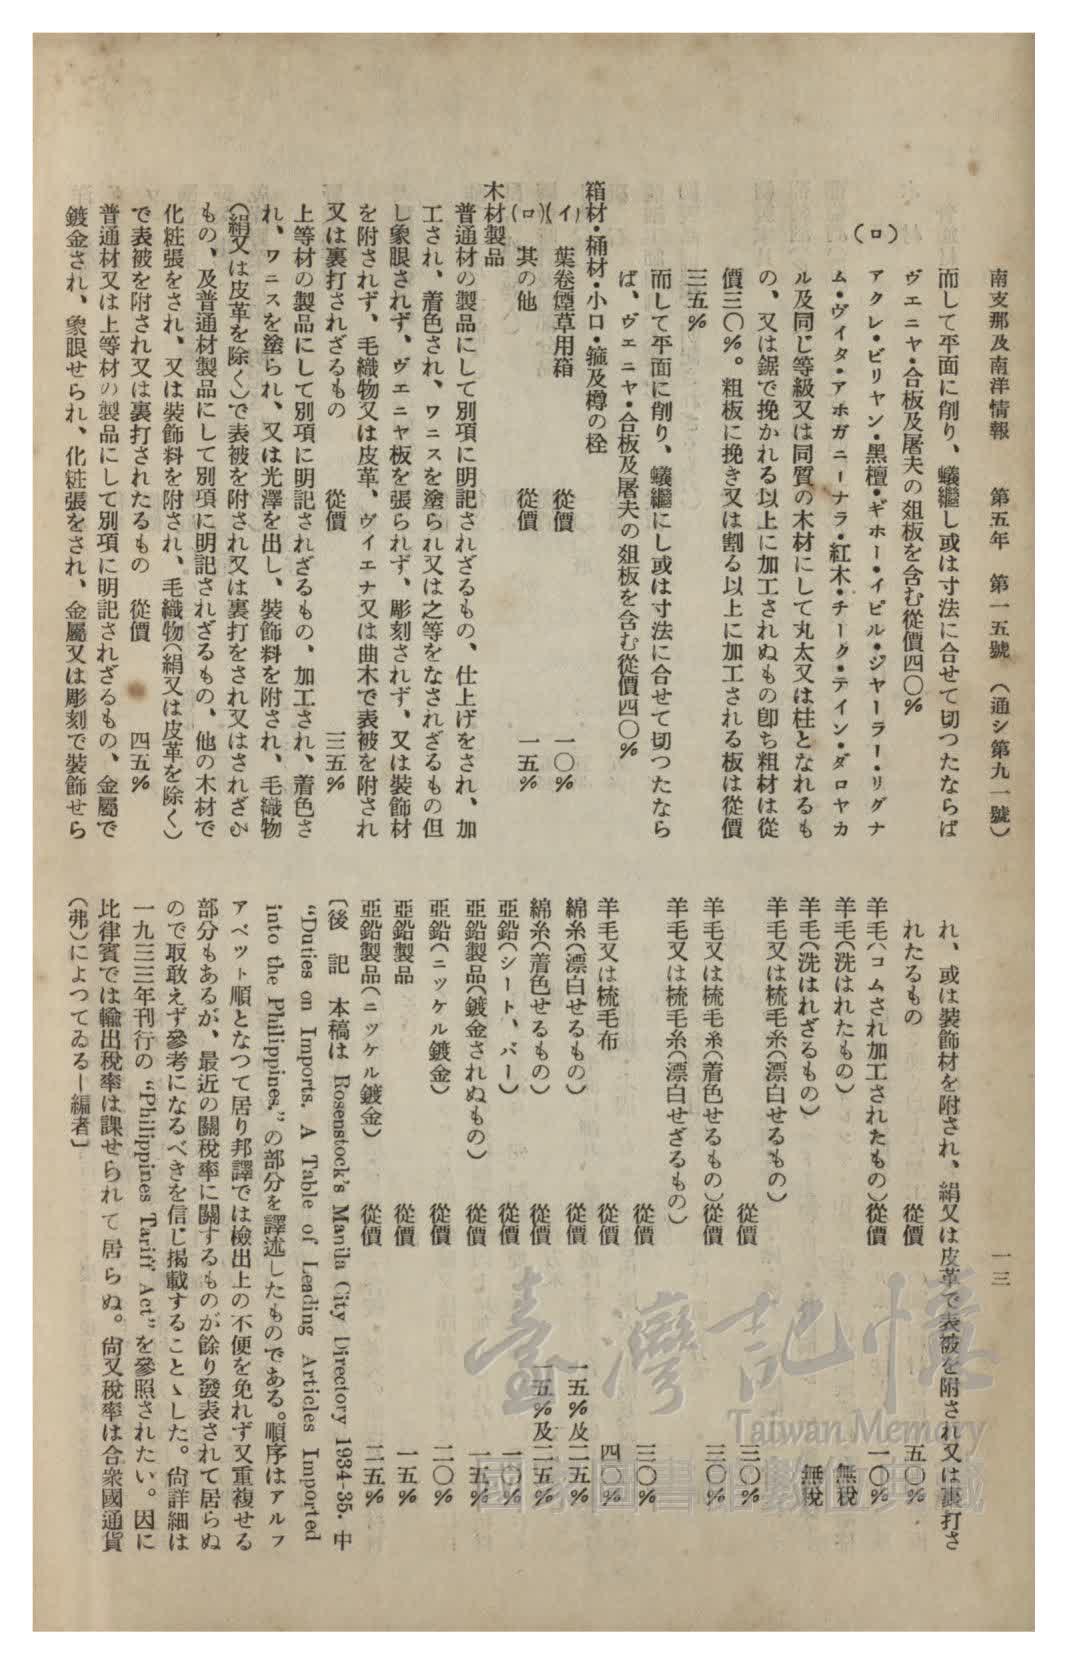 南支那及南洋情報　第五年　第一五號　（通シ第九一號）
一三
而して平面に削り、蟻繼し或は寸法に合せて切つたならば
ヴエニヤ・合板及屠夫の爼板を含む從價四〇％
（ロ）
アクレ・ビリヤン・黑檀・ギホー・イピル・ジヤーラー・リグナ
ム・ヴイタ・アホガニーナラ・紅木・チーク・テイン・ダロヤカ
ル及同じ等級又は同質の木材にして丸太又は柱となれるも
の、又は鋸で挽かれる以上に加工されぬもの卽ち粗材は從
價三〇％。粗板に挽き又は割る以上に加工される板は從價
三五％
而して平面に削り、蟻繼にし或は寸法に合せて切つたなら
ば、ヴエニヤ・合板及屠夫の爼板を含む從價四〇％
箱材・桶材・小口・箍及樽の栓
（イ）　葉卷煙草用箱　從價　一〇％
（ロ）　其の他　從價　一五％
木材製品
普通材の製品にして別項に明記されざるもの、仕上げをされ、加
工され、着色され、ワニスを塗られ又は之等をなされざるもの但
し象眼されず、ヴエニヤ板を張られず、彫刻されず、又は裝飾材
を附されず、毛織物又は皮革、ヴイエナ又は曲木で表被を附され
又は裏打されざるもの　從價　三五％
上等材の製品にして別項に明記されざるもの、加工され、着色さ
れ、ワニスを塗られ、又は光澤を出し、裝飾料を附され、毛織物
（絹又は皮革を除く）で表被を附され又は裏打をされ又はされざる
もの、及普通材製品にして別項に明記されざるもの、他の木材で
化粧張をされ、又は裝飾料を附され、毛織物（絹又は皮革を除く）
で表被を附され又は裏打されたるもの　從價　四五％
普通材又は上等材の製品にして別項に明記されざるもの、金屬で
鍍金され、象眼せられ、化粧張をされ、金屬又は彫刻で裝飾せら
れ、或は裝飾材を附され、絹又は皮革で表被を附され又は裏打さ
れたるもの　從價　五〇％
羊毛（コムされ加工されたもの）從價　一〇％
羊毛（洗はれたもの）　無稅
羊毛（洗はれざるもの）　無稅
羊毛又は梳毛糸（漂白せるもの）
從價　三〇％
羊毛又は梳毛糸（着色せるもの）從價　三〇％
羊毛又は梳毛糸（漂白せざるもの）
從價　三〇％
羊毛又は梳毛布　從價　四〇％
綿糸（漂白せるもの）　從價　一五％及二五％
綿糸（着色せるもの）　從價　一五％及二五％
亞鉛（シート、バー）　從價　一〇％
亞鉛製品（鍍金されぬもの）　從價　一五％
亞鉛（ニッケル鍍金）　從價　二〇％
亞鉛製品　從價　一五％
亞鉛製品（ニッケル鍍金）　從價　二五％
〔後記　本稿は Rosenstock's Manila City Directory 1934-35. 中
“Duties on Imports. A Table of Leading Articles Imported
into the Philippines.” の部分を譯述したものである。順序はアルフ
アベット順となつて居り邦譯では檢出上の不便を免れず又重複せる
部分もあるが、最近の關稅率に關するものが餘り發表されて居らぬ
ので取敢えず參考になるべきを信じ揭載することゝした。尙詳細は
一九三三年刊行の “Philippines Tariff Act” を參照されたい。因に
比律賓では輸出稅率は課せられて居らぬ。尙又稅率は合衆國通貨
（弗）によつてゐる―編者〕
臺灣記憶
Taiwan Memory
國家圖書館數位典藏